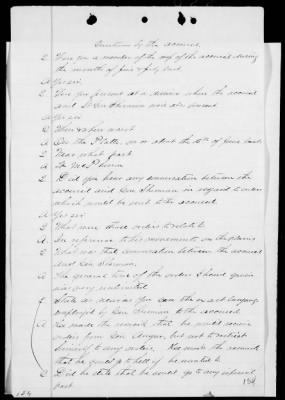 Questions by the accused.
Q Were you a member of the staff of the accused during
the months of June & July last
A Yes sir.
Q Were you present at a review where the accused
and Lt Gen Sherman were also present
A Yes sir
Q When & where was it
A On the Platte, on or about the 15th of June last.
Q Near what post
A Ft McPherson
Q Did you hear any conversation between the
accused and Gen Sherman in regard to orders
which would be sent to the accused
A Yes sir.
Q What were those orders to relate to
A In reference to his movements on the plains
Q What was that conversation between the accused
and Gen Sherman.
A The general tone of the orders should give
was very unlimited
Q State as near as you can the exact language
employed by Gen Sherman to the accused
A He made the remark that he would receive
orders from Gen Augur, but not to restrict
himself to any orders. He made the remark
that he could go to hell if he wanted to
Q Did he state that he could go to any
post